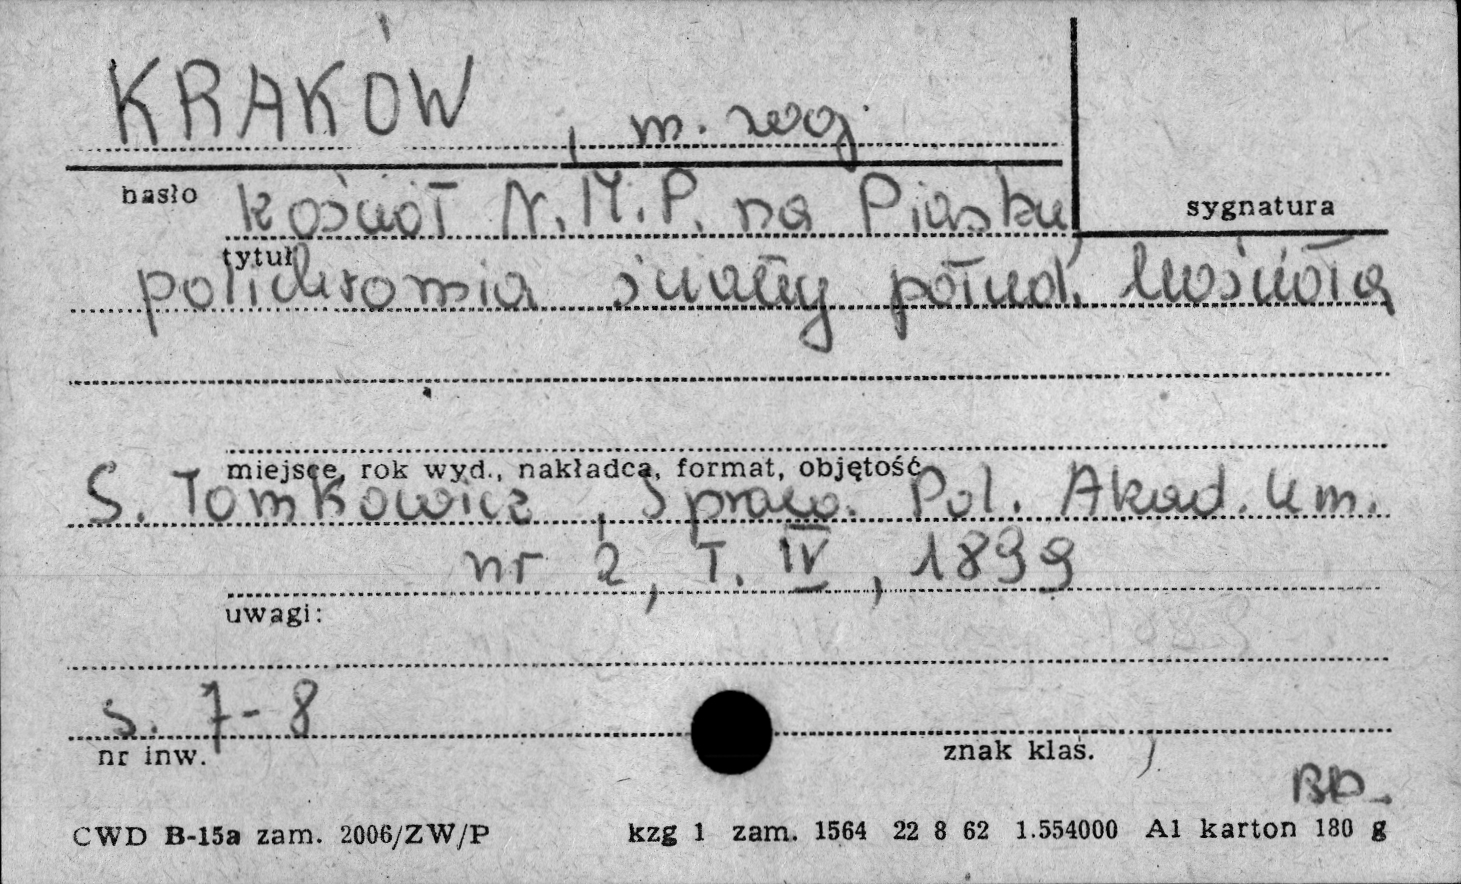 KRAKÓW, m. woj.
hasło
sygnatura
kościoł N.M.P. na Piasku,
tytuł
polichromia ściany połud. kościoła
miejsce, rok wyd., nakładca, format, objętość
S. Tomkowicz, Spraw. Pol. Akad. Um.
nr 2, T. IV, 1899
uwagi:
s. 7-8
nr inw.
znak klas.
BD.
CWD B-15a zam. 2006/ZW/P
kzg 1 zam. 1564 22 8 62 1.554000 A1 karton 180 g